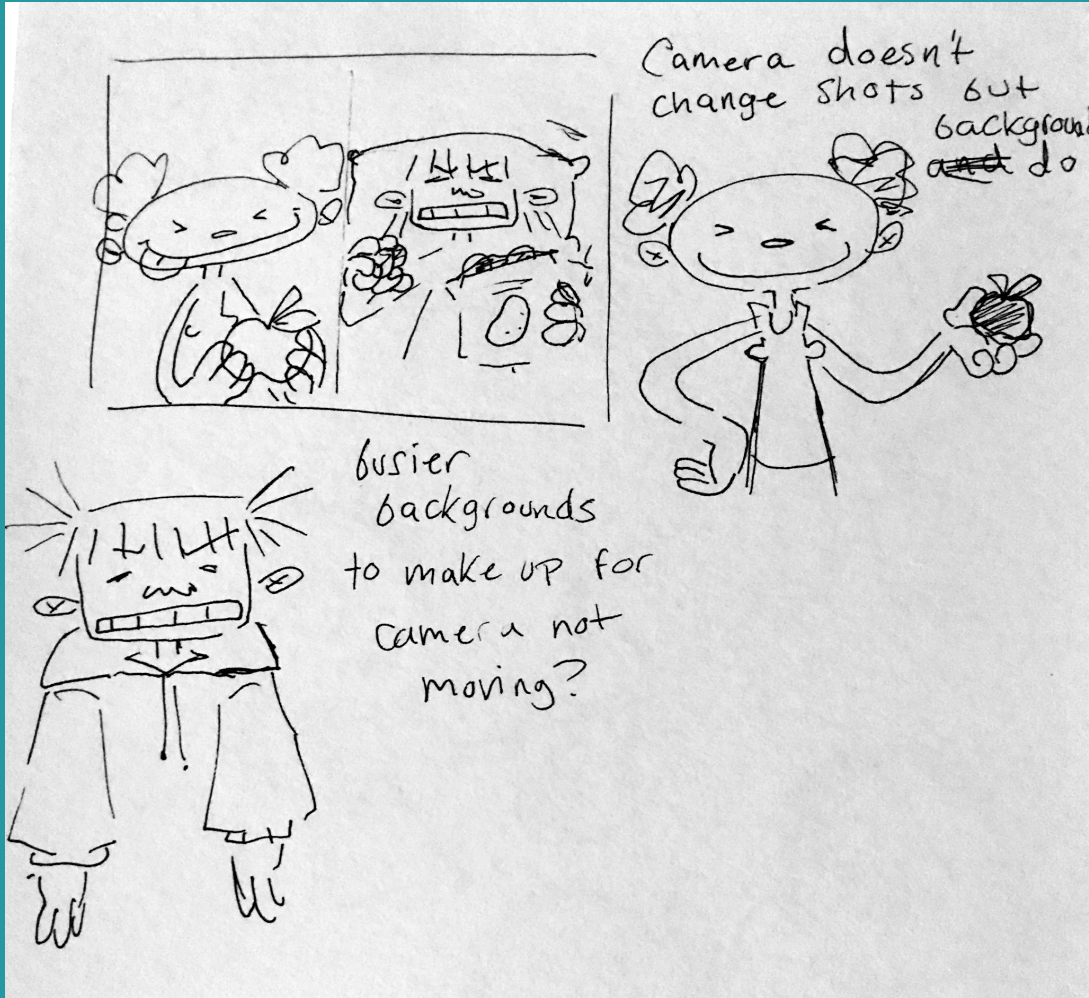 Camera doesn't
change shots but
background
and do
busier
backgrounds
to make up for
camera not
moving?